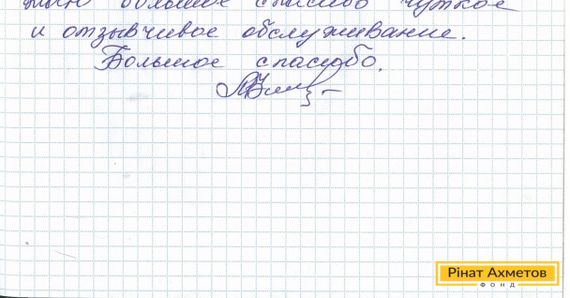 большое спасибо чуткое
и отзывчивое обслуживание.
Большое спасибо.
Рінат Ахметов
ФОНД